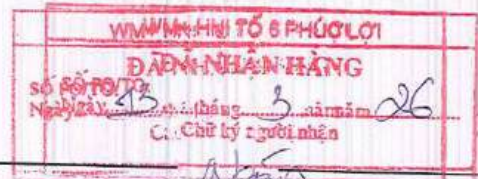 WM+ HNI TỔ 6 PHÚC LỢI
ĐÃ NHẬN HÀNG
Số PO/TO:
Ngày 13 tháng 3 năm 26
Chữ ký người nhận